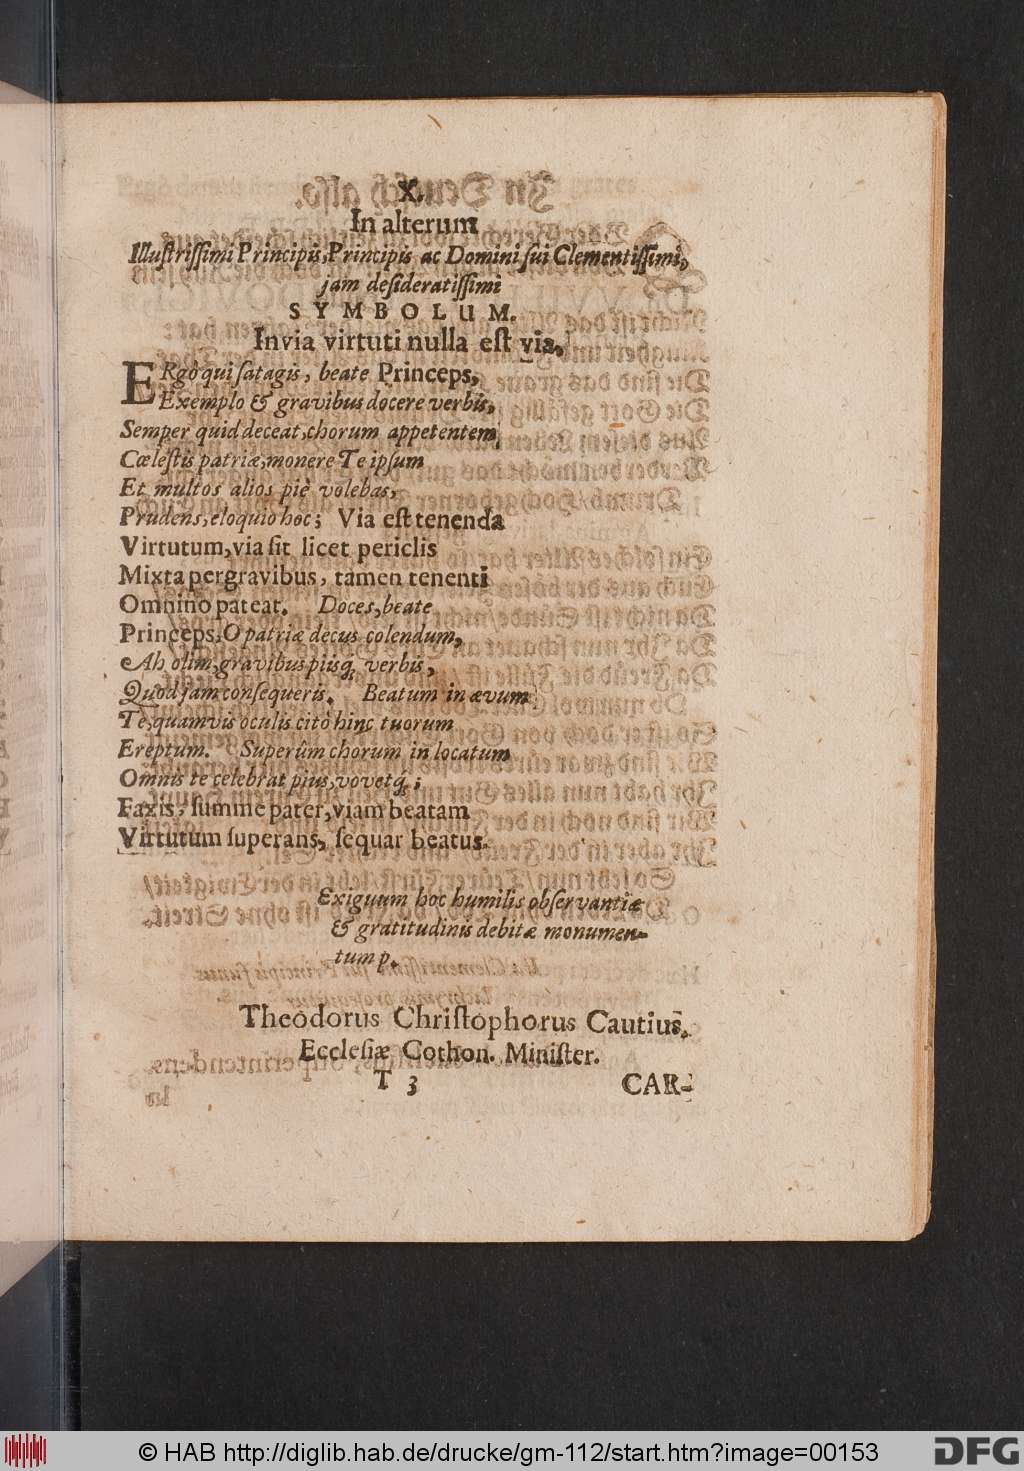 X.
In alterum
Illuſtriſſimi Principis, Principis ac Domini ſui Clementiſſimi,
jam deſideratiſſimi
SYMBOLUM.
Invia virtuti nulla eſt via,
ERgò qui ſatagis, beate Princeps,
Exemplo & gravibus docere verbis,
Semper quid deceat, chorum appetentem
Cœleſtis patriæ, monere Te ipſum
Et multos alios piè volebas,
Prudens, eloquio hoc; Via eſt tenenda
Virtutum, via ſit licet periclis
Mixta pergravibus, tamen tenenti
Omnino pateat. Doces, beate
Princeps, O patriæ decus colendum,
Ah olim, gravibus piisq́; verbis,
Quod jam conſequeris. Beatum in ævum
Te, quamvis oculis citò hinc tuorum
Ereptum. Superûm chorum in locatum
Omnis te celebrat pius, vovetq́;;
Faxis, ſumme pater, viam beatam
Virtutum ſuperans, ſequar beatus.
Exiguum hoc humilis obſervantiæ
& gratitudinis debitæ monumen-
tum p.
Theodorus Chriſtophorus Cautius,
Eccleſiæ Cothon. Miniſter.
T 3 CAR-
© HAB http://diglib.hab.de/drucke/gm-112/start.htm?image=00153
DFG